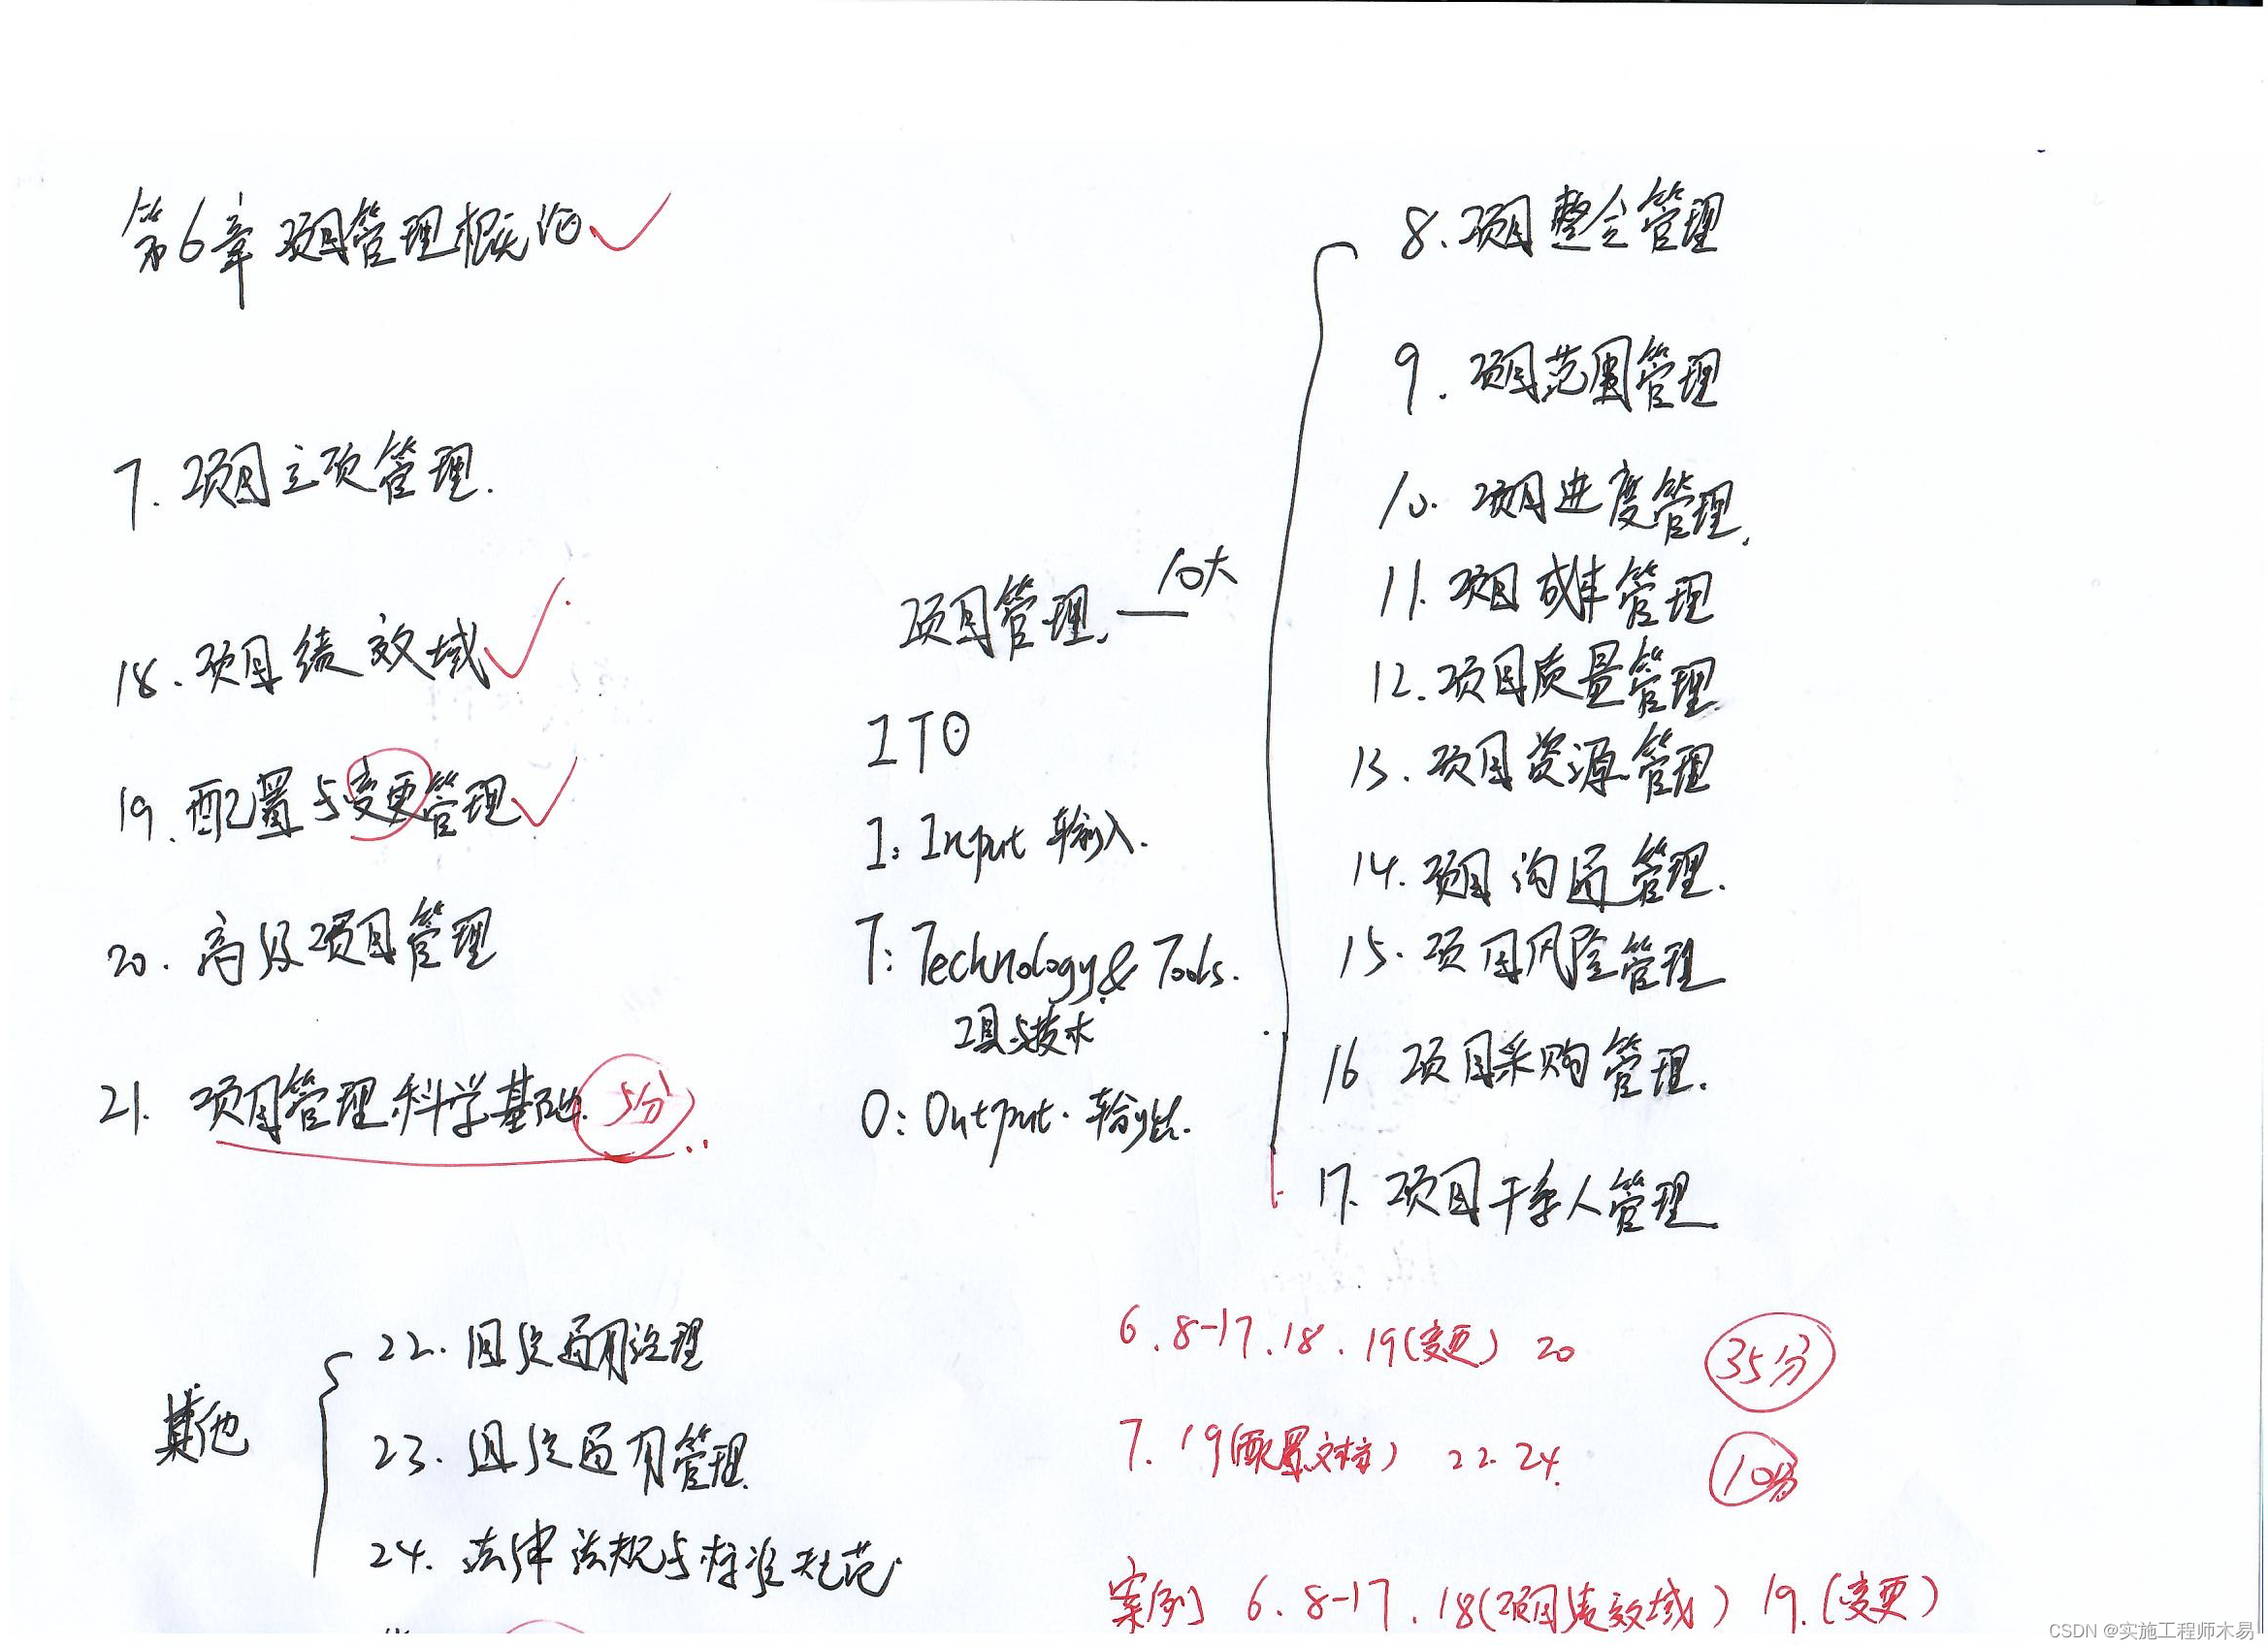 第6章 项目管理概论
7. 项目立项管理.
18. 项目绩效域
19. 配置与变更管理
20. 高级项目管理
21. 项目管理科学基础. 5分
项目管理. — 10大
ITO
I: Input 输入.
T: Technology & Tools.
工具与技术
O: Output. 输出.
8. 项目整合管理
9. 项目范围管理
10. 项目进度管理.
11. 项目成本管理
12. 项目质量管理.
13. 项目资源管理
14. 项目沟通管理.
15. 项目风险管理
16 项目采购管理.
17. 项目干系人管理
其他
22. 组织通用治理
23. 组织通用管理.
24. 法律法规与标准规范.
6. 8-17. 18. 19(变更) 20 35分
7. 19(配置.文档) 22. 24. 10分
案例 6. 8-17. 18(项目绩效域) 19.(变更)
CSDN @实施工程师木易